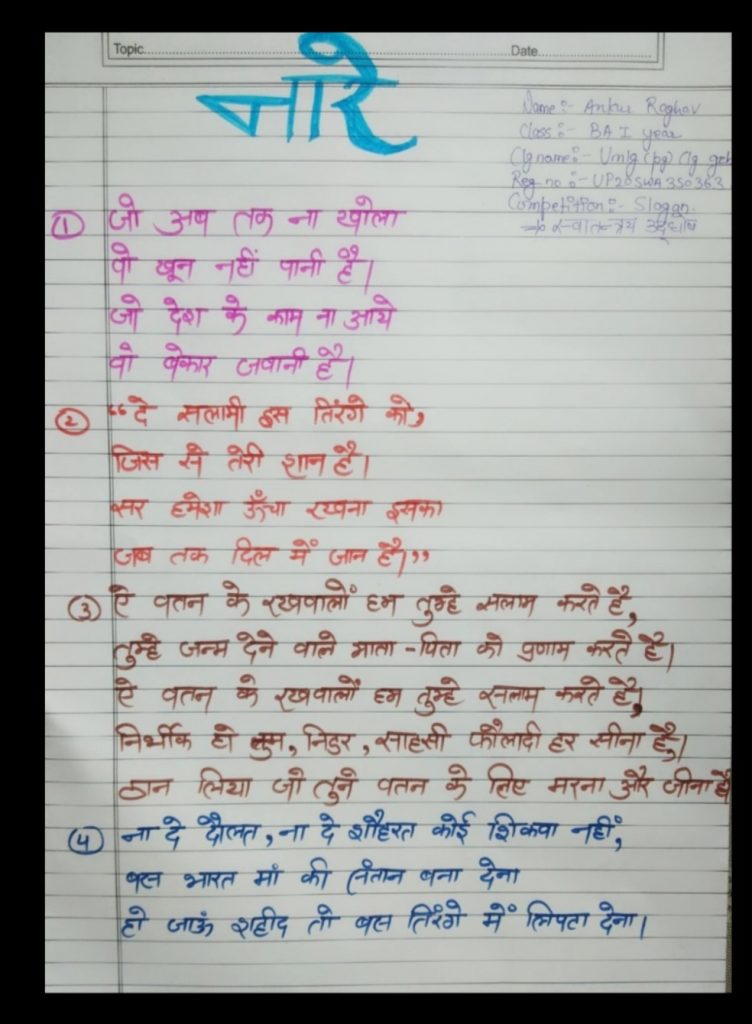 Topic
Date
नारे
Name:- Ankur Raghav
Class:- BA I year
Clg name:- Umlg (pg) Clg
Reg no:- UP20SWA350363
Competition:- Slogan
→ स्वातन्त्रय उद्घोष
① जो अब तक ना खोला
वो खून नहीं पानी है।
जो देश के काम ना आये
वो बेकार जवानी है।
② “दे सलामी इस तिरंगे को,
जिस से तेरी शान है।
सर हमेशा ऊँचा रखना इसका
जब तक दिल में जान है।”
③ ऐ वतन के रखवालों हम तुम्हे सलाम करते है,
तुम्हे जन्म देने वाले माता-पिता को प्रणाम करते है।
ऐ वतन के रखवालों हम तुम्हे सलाम करते है,
निर्भीक हो तुम, निडर, साहसी फौलादी हर सीना है,।
ठान लिया जो तुने वतन के लिए मरना और जीना है
④ ना दे दौलत, ना दे शौहरत कोई शिकवा नहीं,
बस भारत मां की संतान बना देना
हो जाऊं शहीद तो बस तिरंगे में लिपटा देना।